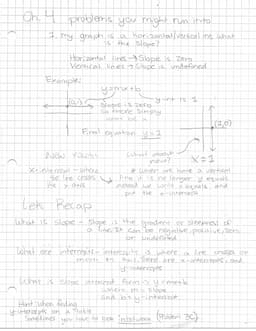 Ch. 4 problems you might run into
1. my graph is a horizontal/vertical line what
is the slope?
Horizontal lines → Slope is zero
Vertical lines → Slope is undefined
Example:
y=mx+b
y-int is 1
Slope is zero
so there simply
Final equation y=1
(2,0)
x=1
X-intercept - where
the line crosses
the x axis
* when you have a vertical
line it is no longer y equals
instead we write x equals and
put the x-intercept
Lets Recap
What is slope - Slope is the gradient or steepness of
a line. It can be negative, positive, zero,
or undefined
What are intercepts - intercepts is where a line crosses or
meets
there are x-intercepts and
y-intercepts
What is slope intercept form - y=mx+b
where m is slope
and b is y-intercept
Hint: when finding
y-intercepts on a table
sometimes you have to look inbetween (Problem 3C)